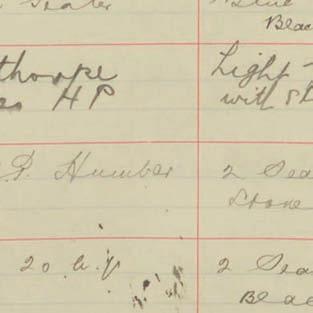 Seater
Blue
Blac
thorpe
Light
HP
with
P. Humber
2 Sea
Stone
20 h.p
2 Sea
Blac